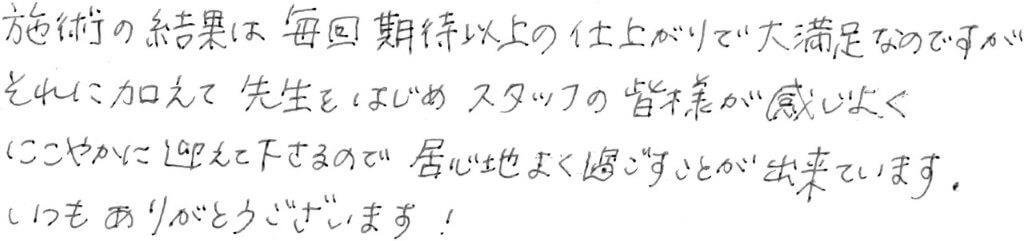 施術の結果は 毎回 期待以上の仕上がりで大満足なのですが
それに加えて 先生をはじめ スタッフの皆様が感じよく
にこやかに迎えて下さるので 居心地よく過ごすことが出来ています.
いつもありがとうございます!